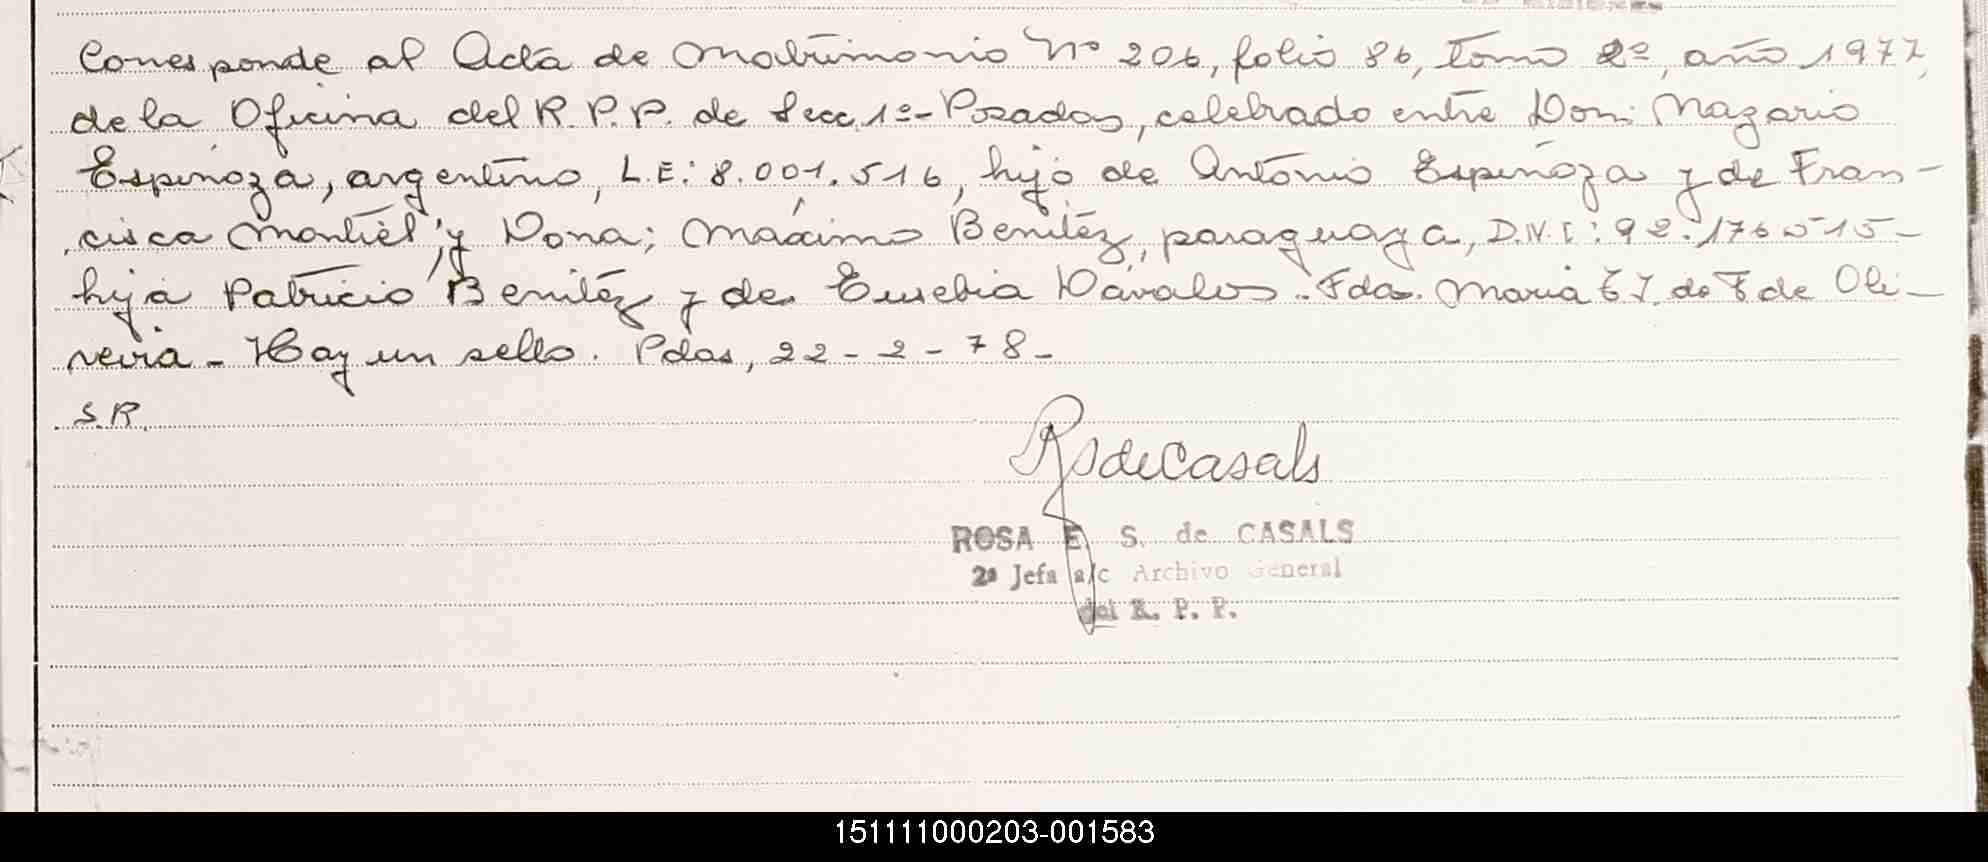 Corresponde al Acta de Matrimonio Nº 206, folio 86, Tomo 2º, año 1977,
de la Oficina del R.P.P. de Secc. 1º- Posadas, celebrado entre Don: Nazario
Espinoza, argentino, L.E: 8.001.516, hijo de Antonio Espinoza y de Fran-
cisca Montiel; y Doña; Máxima Benítez, paraguaya, D.N.I: 92.
hija Patricio Benítez y de Eusebia Dávalos. Fda. María de Oli-
veira - Hay un sello. Pdas, 22-2-78-
S.R.
RSdeCasals
ROSA E. S. de CASALS
2ª Jefa a/c Archivo General
del R. P. P.
151111000203-001583